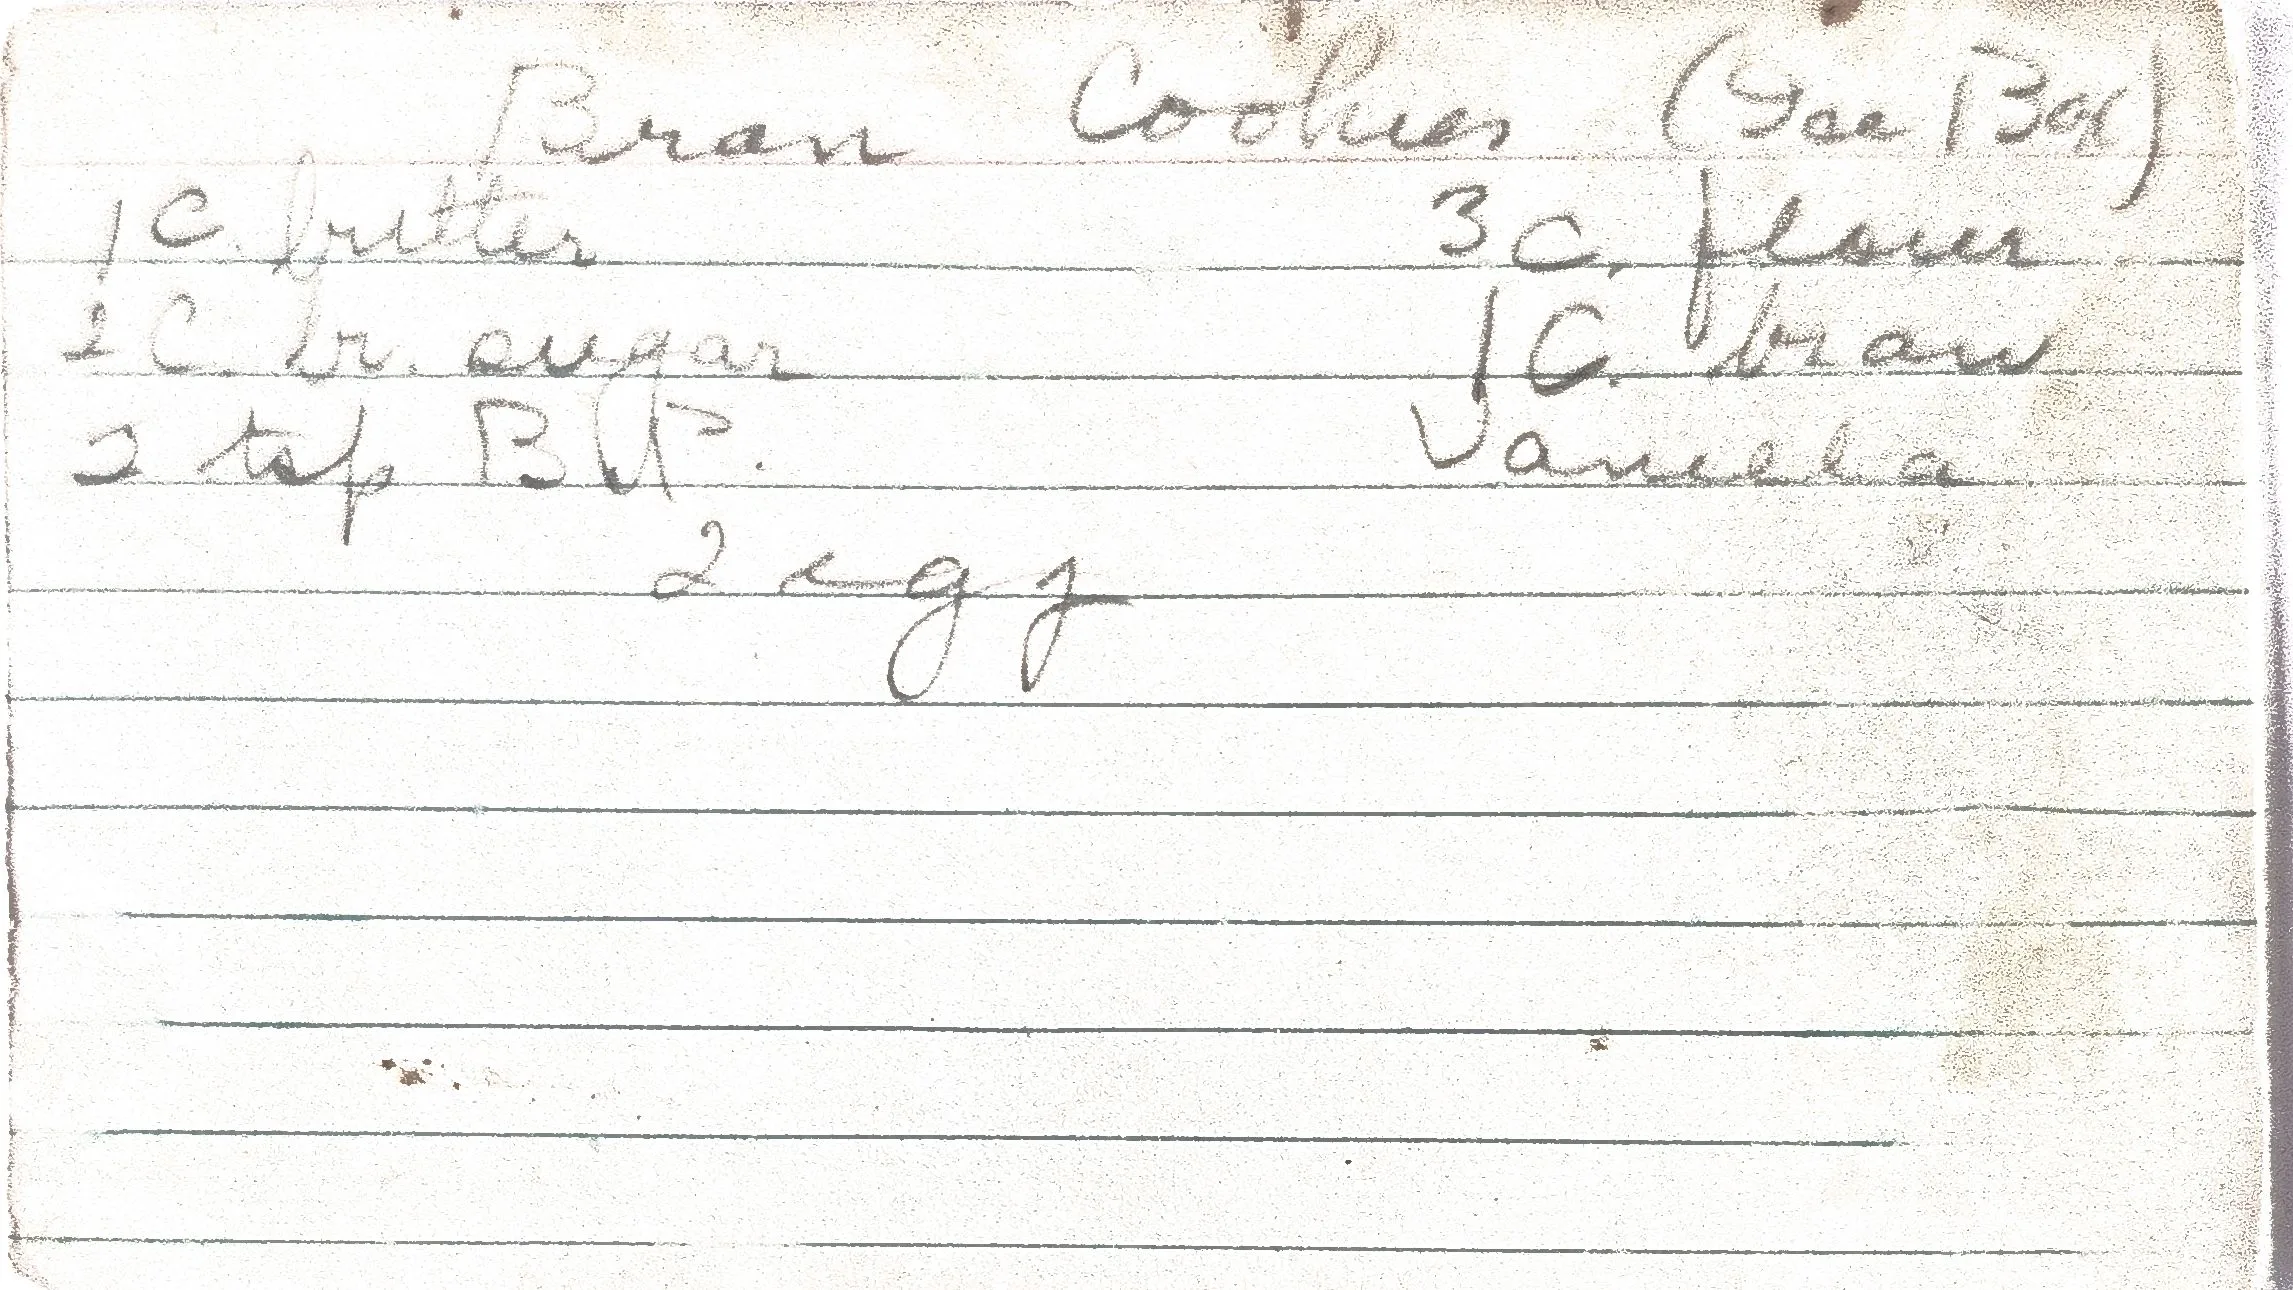 Bran Cookies (Ice Box)
1 C. butter 3 C. flour
2 C br. sugar 1 C. bran
2 tsp B P. Vanilla
2 eggs